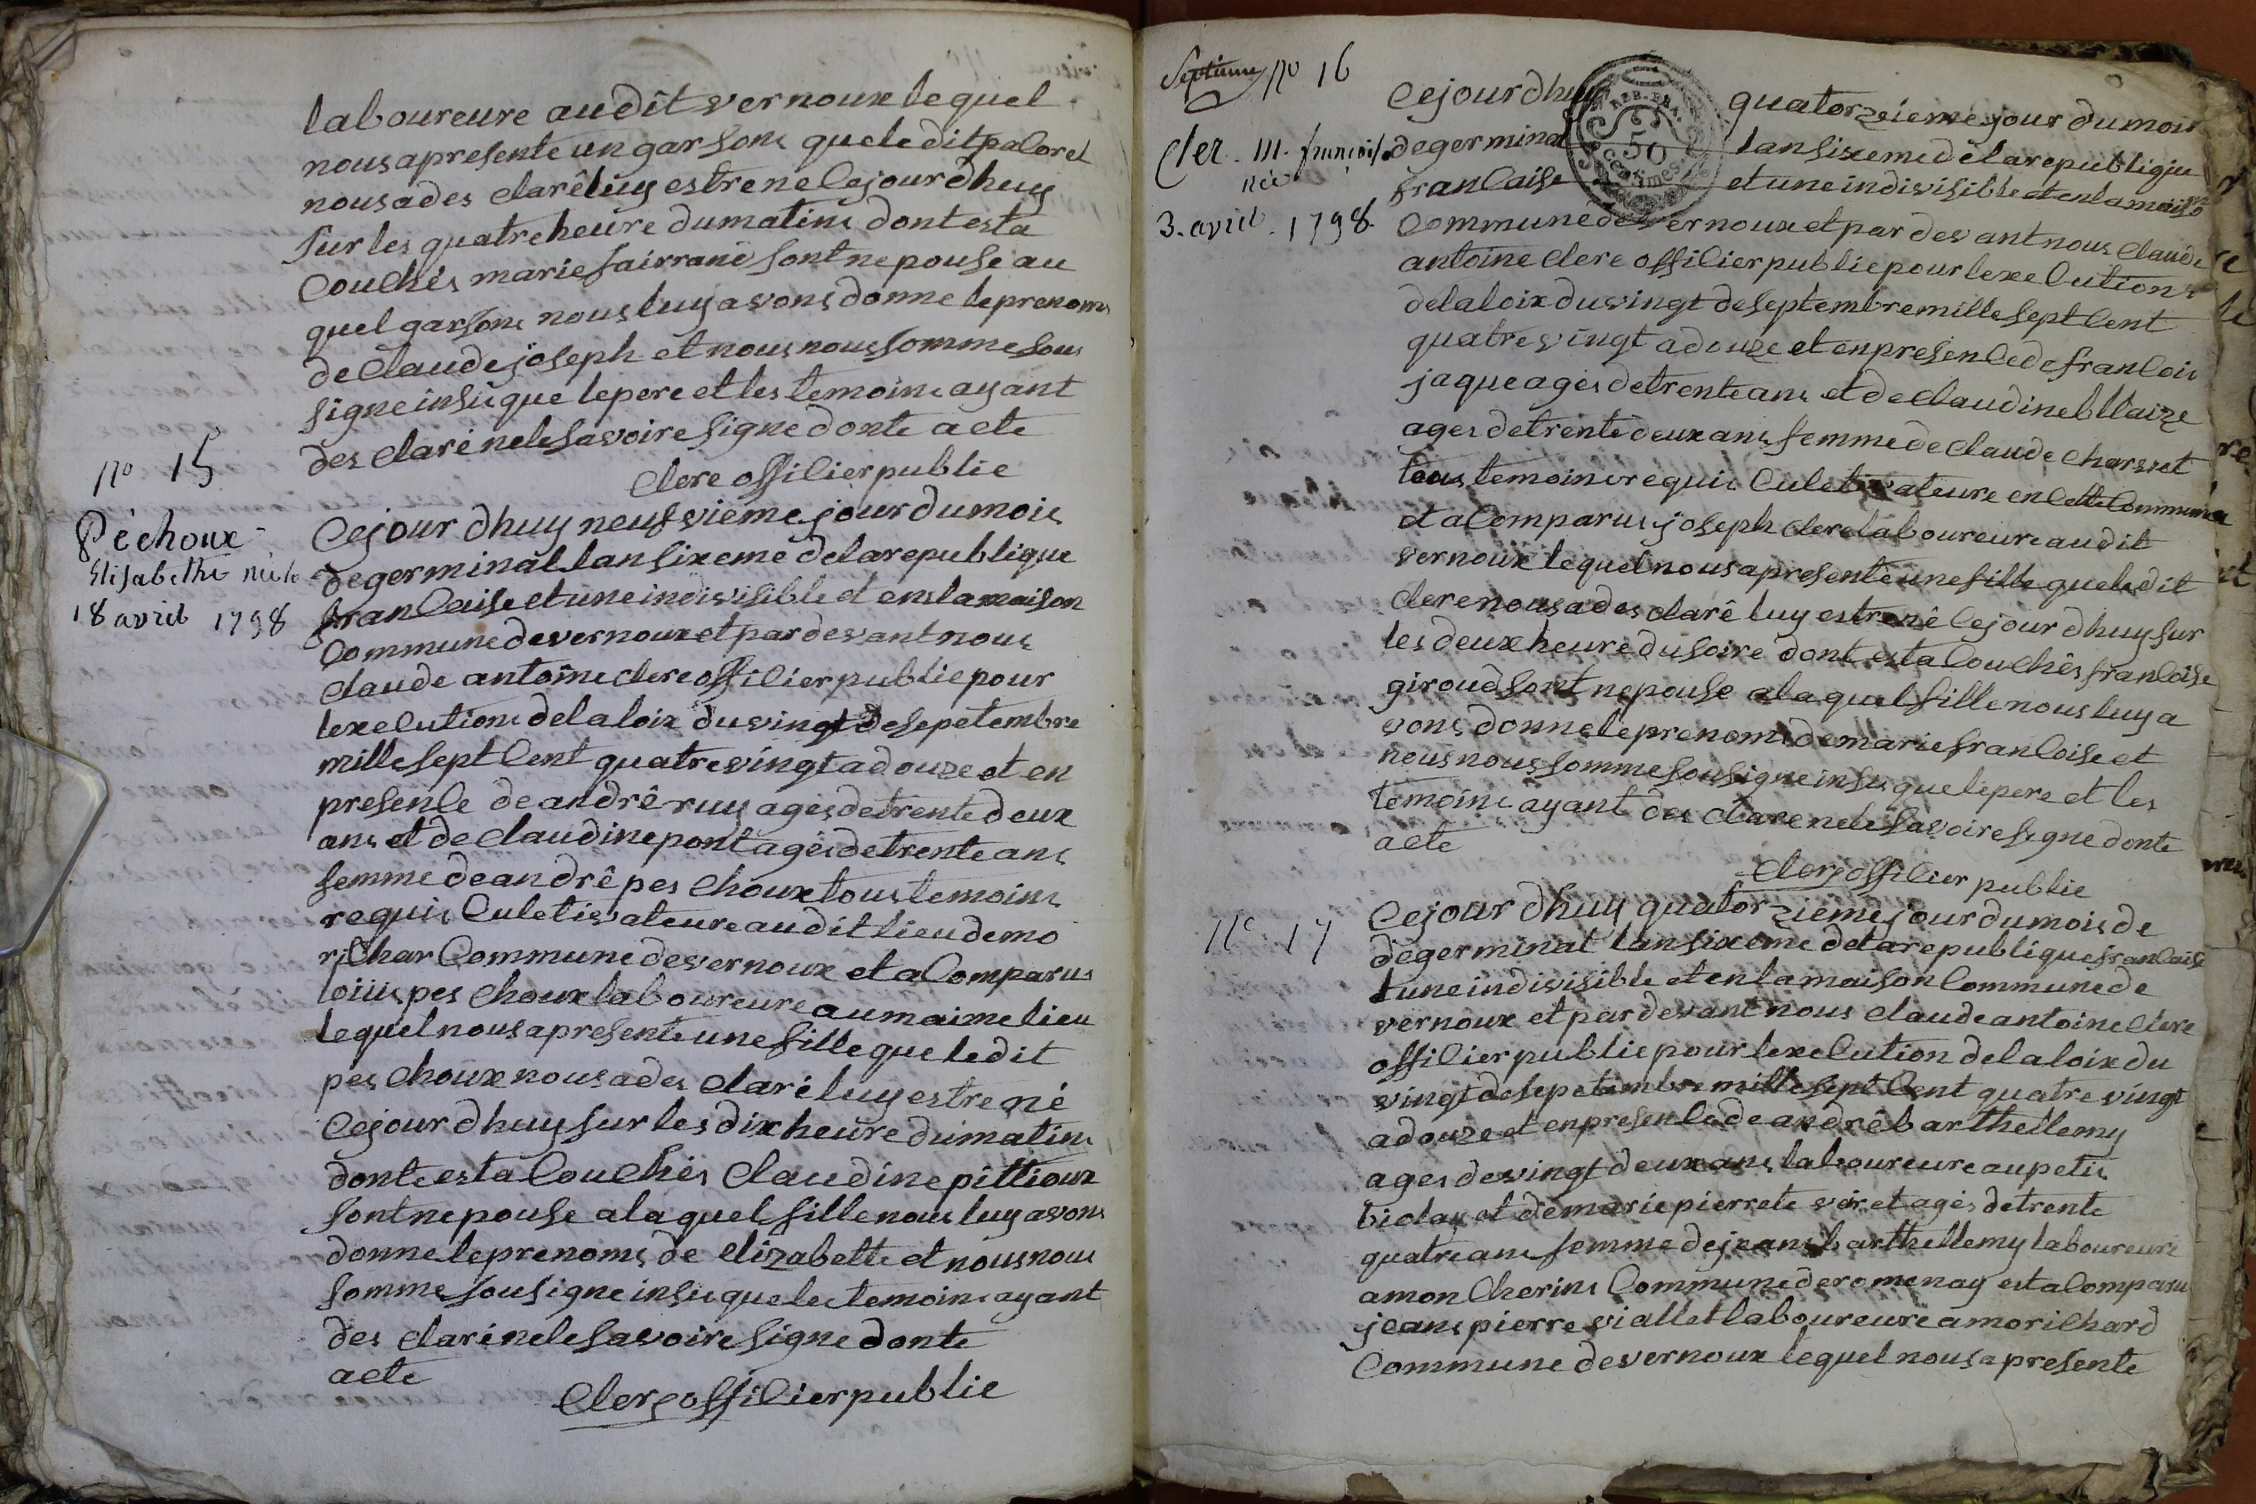 laboureure audit vernoux lequel
nous apresente un garsons que le dit paloret
nous a des clarê luy estre ne cejour dhuy
sur les quatre heure du matins dont esta
couchés marie sont nepouse au
quel garsons nous luy avons donne le prenoms
de claude joseph et nous nous somme sous
signe insi que le pere et les temoins ayant
des claré nele savoire signe donte acte
clere offilier publie
no 15
Péchoux
Elisabethe née le
18 avril 1798
Cejour dhuy neufvième jour du mois
de germinal lan sixeme de la republique
francaise et une indivisible et ens la maison
commune de vernoux et par devant nous
claude antoine clere offilier publie pour
lexecutions de la loix du vingt de sepetembre
mille sept cent quatre vingt a douze et en
presence de andrê ruy agés de trente deux
ans et de claudine pont agés de trente ans
femme de andrê pes choux tous temoins
requis culetivateure au dit lieu de mo
richar commune de vernoux et a comparus
louis pes choux laboureure au maime lieu
lequel nous apresente une fille que le dit
pes choux nous a des claré luy estre né
cejour dhuy sur les dix heure du matins
donte esta couchés claudine pittioux
sont nepouse a la quel fille nous luy avons
donne le prenoms de elizabette et nous nous
somme sousigne insi que les temoins ayant
des claré nele savoire signe donte
acte
Clere offilier publie
Septieme no 16
Cler. m. françoise
née
3. avril. 1798.
Cejour dhuy quatorzieme jour du mois
de germinal lan sixeme de la republique
francaise et une indivisible et en la maison
REP. FRA.
50
CENTIMES
commune de vernoux et par devant nous claude
antoine clere offilier publie pour lexecutions
de la loix du vingt de septembre mille sept cent
quatre vingt a douze et en presence de francois
jaque agés de trente ans et de claudine bllaize
agés de trente deux ans femme de claude charvet
tous temoins requis culetivateure en cette commune
et a comparus joseph clere laboureure au dit
vernoux lequel nous apresente une fille que le dit
clere nous a des clarê luy estre nê cejour dhuy sur
les deux heure du soire dont esta couchês francoise
giroud sont nepouse a la quel fille nous luy a
vons donne le prenoms de marie francoise et
nous nous somme sousigne insi que le pere et les
temoins ayant des clare nele savoire signe donte
acte
Clere offilier publie
no 17
Cejour dhuy quatorzieme jour du mois de
de germinal lan sixeme de la republique francaise
et une indivisible et en la maison commune de
vernoux et par devant nous claude antoine clere
offilier publie pour lexecution de la loix du
vingt de sepetembre mille sept cent quatre vingt
a douze et en presence de andrê barthellemy
agés de vingt deux ans laboureure au petis
biolay et de marie pierrete agés de trente
quatre ans femme de jeans barthellemy laboureure
a mon cherins commune de romenay esta comparu
jeans pierre viallet laboureure a morichard
commune de vernoux lequel nous a presente